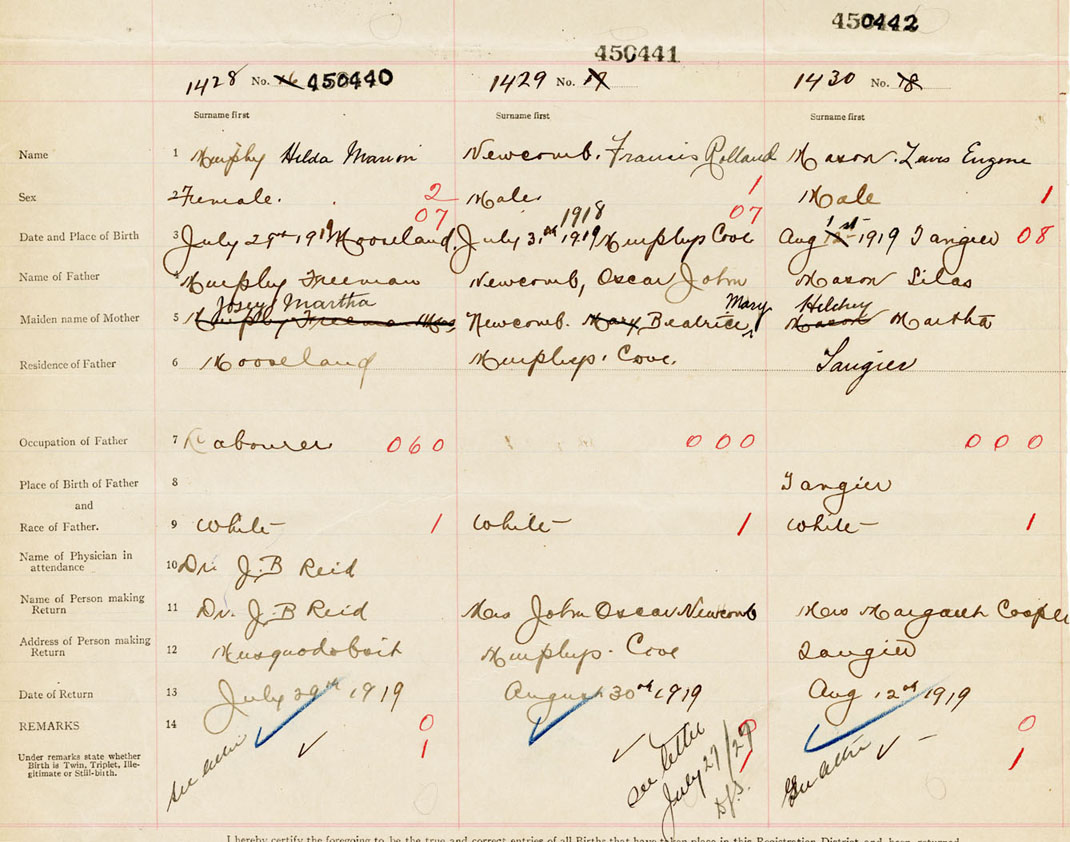 450442
450441
1428 No. 16 450440 1429 No. 17 1430 No. 18
Surname first Surname first Surname first
Name 1 Murphy Hilda Marion Newcomb. Francis Rolland Mason. Lavis Eugene
Sex 2 Female. 2 Male. 1 Male 1
07 1918 07 1st
Date and Place of Birth 3 July 29th 1919 Mooseland. July 31st 1919 Murphys Cove Aug 12th 1919 Tangier 08
Name of Father 4 Murphy Freeman Newcomb, Oscar John Mason Silas
Josey Martha Mary Hilchey
Maiden name of Mother 5 Murphy Freeman Mrs Newcomb. Mary Beatrice Mason Martha
Residence of Father 6 Mooseland Murphys. Cove. Tangier
Occupation of Father 7 Labourer 060 000 000
Place of Birth of Father 8 Tangier
and
Race of Father. 9 White 1 White 1 White 1
Name of Physician in
attendance 10 Dr. J.B Reid
Name of Person making
Return 11 Dr. J.B Reid Mrs John Oscar Newcomb Mrs Margaret Cooper
Address of Person making
Return 12 Musquodoboit Murphys. Cove Tangier
Date of Return 13 July 29th 1919 August 30th 1919 Aug 12th 1919
REMARKS 14 0 0 0
Under remarks state whether
Birth is Twin, Triplet, Ille-
gitimate or Still-birth. 1 1 1
see letter
see letter
July 27/29
D.J.S.
See letter
I hereby certify the foregoing to be the true and correct entries of all Births that have taken place in this Registration District and been returned